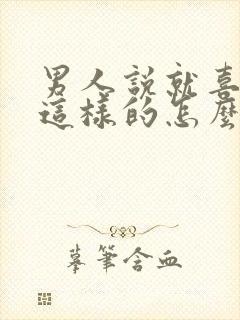 男人說就喜
這樣的怎麼
摹筆含血